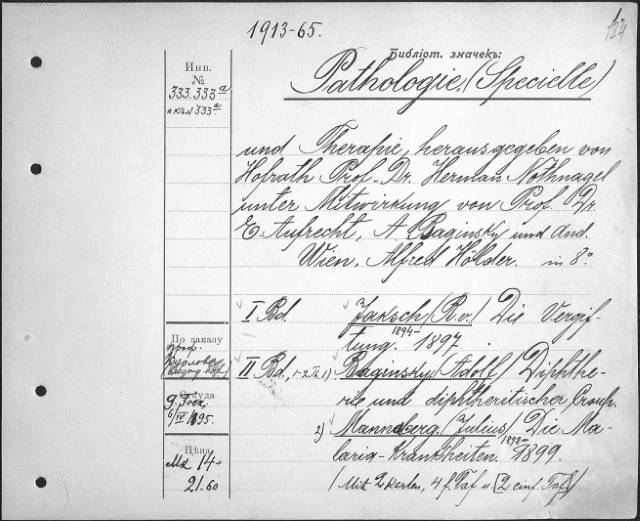 1913-65.
184
Библіот. значекъ:
Инв.
№
333.333 a
и къл 333.a
Pathologie. (Specielle)
und Therapie, herausgegeben von
Hofrath Prof. Dr. Herman Nothnagel
unter Mitwirkung von Prof. Dr.
E. Aufrecht, A. Baginsky und And.
Wien. Alfred Hölder. in 8º
I Bd. Jaksch, (R. v.) Die Vergif-
1894-
tung. 1897.
По заказу
проф.
II Bd, 1) Baginsky, (Adolf) Diphthe-
rie und diphtheritischer Croup.
Откуда
6/IV 1895.
2) Mannaberg, (Julius) Die Ma-
1898-
laria-Krankheiten. 1899.
Цѣна
Mk 14
21.60
(Mit 2 Karten, 4 f. Taf u. (2 einf. Taf.)